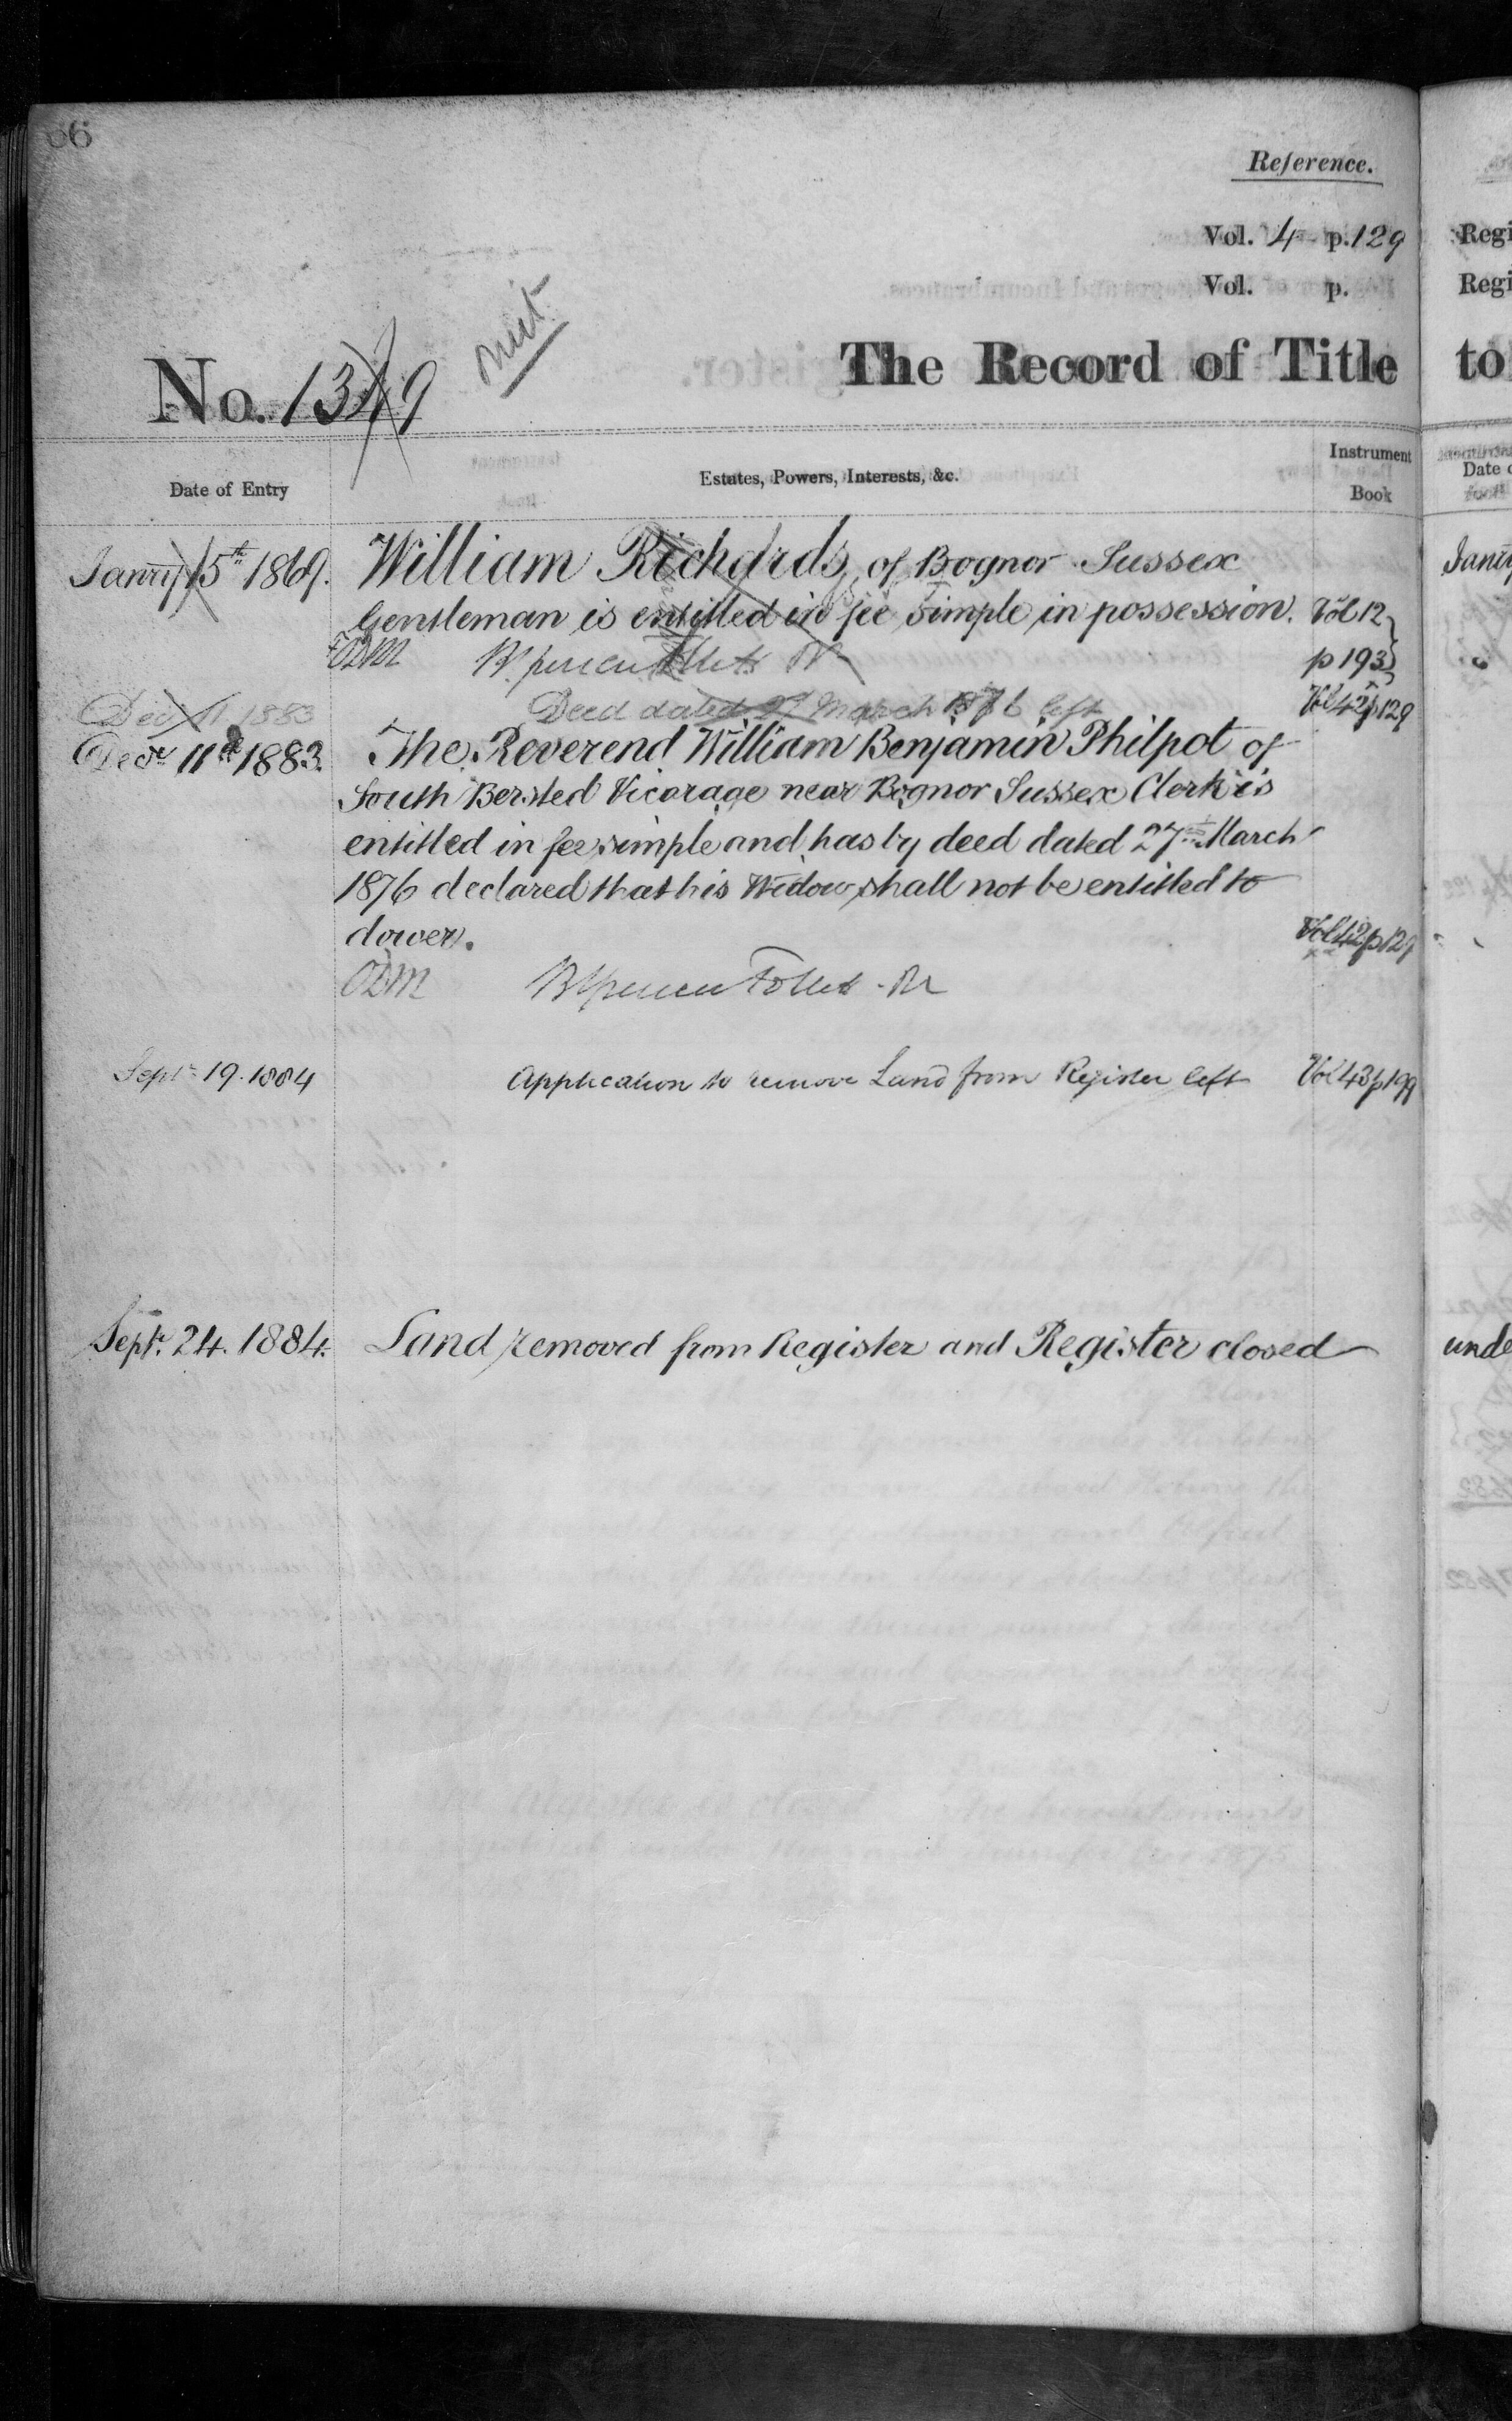 66
Reference.
Vol. 4 p. 129
Vol. p.
No. 1349
The Record of Title
Date of Entry
Estates, Powers, Interests, &c.
Instrument
Book
Janry 15th 1869. William Richards, of Bognor Sussex
Gentleman is entitled in fee simple in possession. Vol 12
p 193
Dec 11 1883 Deed dated 27 March 1876 left Vol 42 p 129
Decr 11th 1883. The Reverend William Benjamin Philpot of
South Bersted Vicarage near Bognor Sussex Clerk is
entitled in fee simple and has by deed dated 27th March
1876 declared that his Widow shall not be entitled to
dower. Vol 42 p 129
Septr 19. 1884 Application to remove Land from Register left Vol 43 p 199
Septr. 24. 1884. Land removed from Register and Register closed
Regi
Regi
to
Date
unde